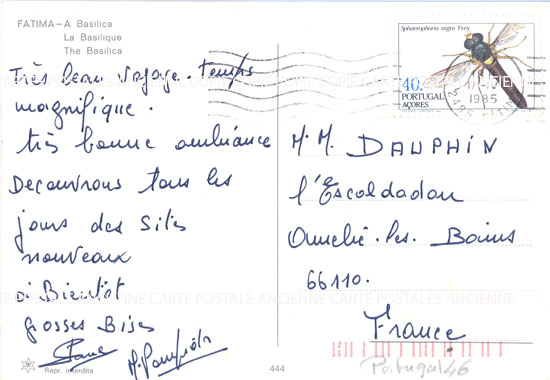 FATIMA – A Basilica
La Basilique
The Basilica
Très beau voyage. temps
magnifique.
très bonne ambiance
Decouvrons tous les
jours des sites
nouveaux
a Bientôt
grosses Bises
Repr. interdita
444
Sphaerophoria nigra Frey
40.
PORTUGAL
AÇORES
1985
M. M. DAUPHIN
l'Escoldadou
Amelie. les. Bains
66110.
France
Portugal 46
CARTE POSTALE ANCIENNE